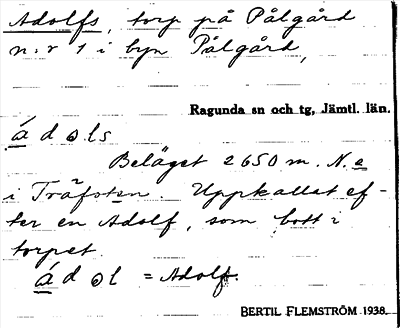 Adolfs, torp på Pålgård
n:r 1 i byn Pålgård,
Ragunda sn och tg, Jämtl. län.
á d ə ls
Beläget 2650 m. N. e
i Uppkallat ef-
ter en Adolf, som bott i
torpet.
á d ə l = Adolf.
BERTIL FLEMSTRÖM 1938.